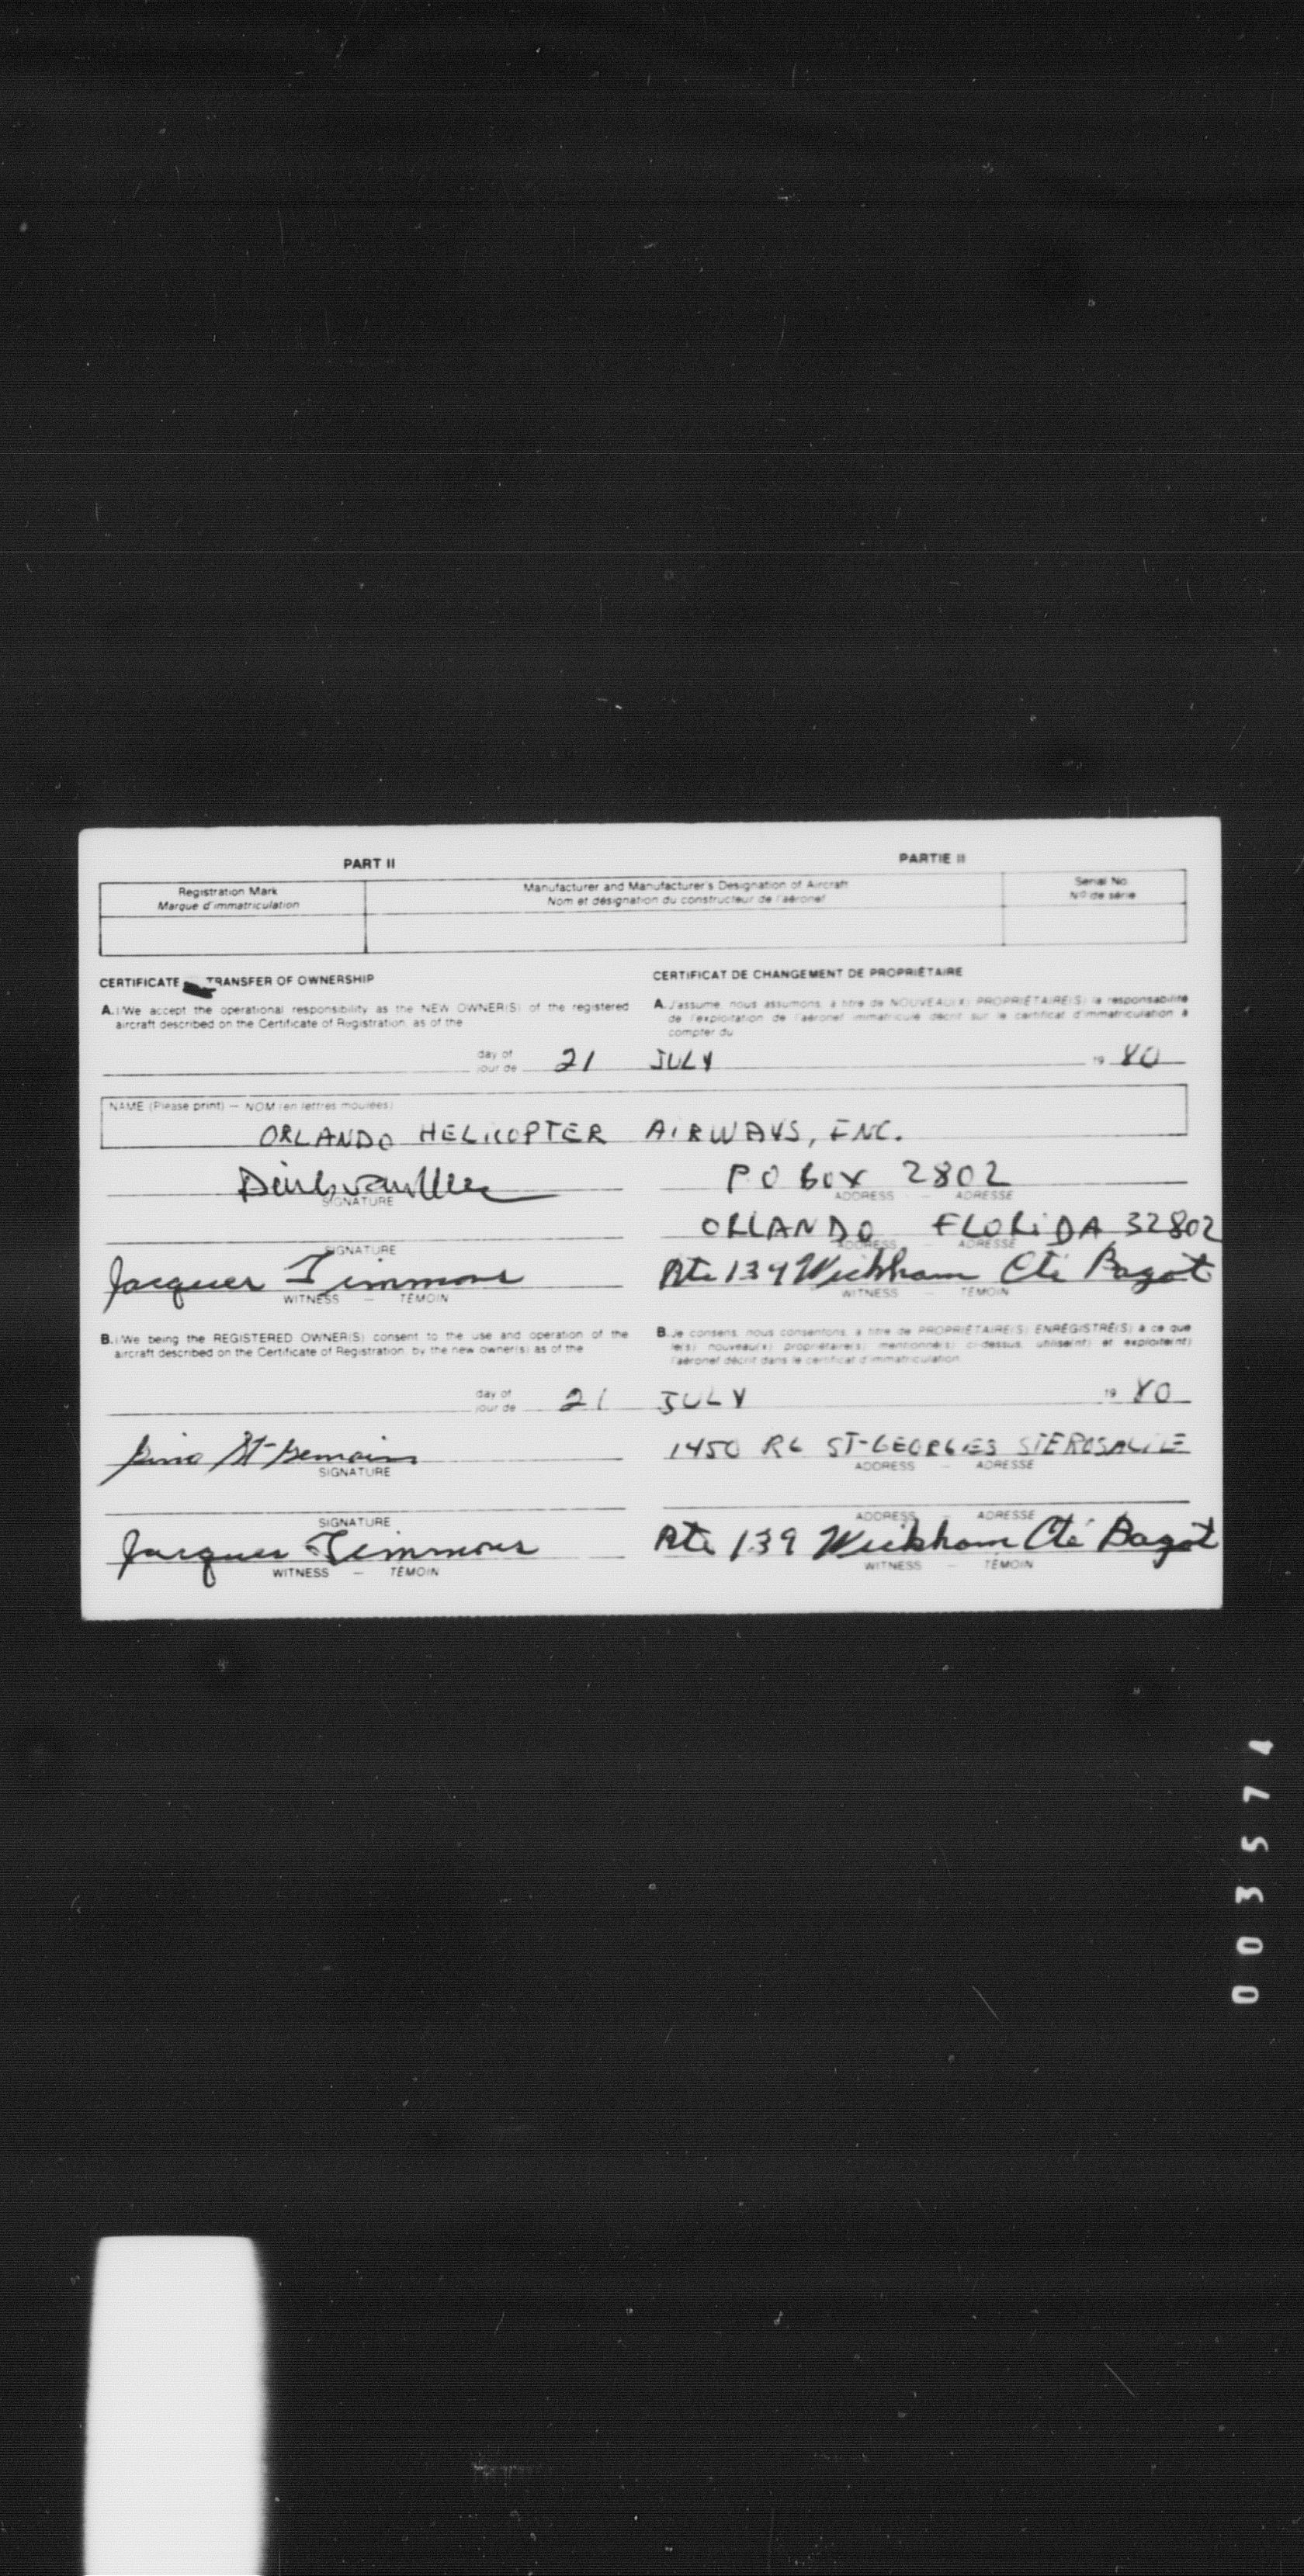 PART II PARTIE II
Registration Mark Manufacturer and Manufacturer's Designation of Aircraft Serial No.
Marque d'immatriculation Nom et désignation du constructeur de l'aéronef Nº de série
CERTIFICATE TRANSFER OF OWNERSHIP
A. I/We accept the operational responsibility as the NEW OWNER(S) of the registered
aircraft described on the Certificate of Registration, as of the
CERTIFICAT DE CHANGEMENT DE PROPRIÉTAIRE
A. J'assume, nous assumons, à titre de NOUVEAU(X) PROPRIÉTAIRE(S) la responsabilité
de l'exploitation de l'aéronef immatriculé décrit sur le certificat d'immatriculation à
compter du
day of
jour de 21 JULY 19 80
NAME (Please print) — NOM (en lettres moulées)
ORLANDO HELICOPTER AIRWAYS, INC.
P O BOX 2802
SIGNATURE ADDRESS — ADRESSE
ORLANDO FLORIDA 32802
SIGNATURE ADDRESS — ADRESSE
Jacques Timmons Rte 139 Wickham Cté Bagot
WITNESS — TÉMOIN WITNESS — TÉMOIN
B. I/We being the REGISTERED OWNER(S) consent to the use and operation of the
aircraft described on the Certificate of Registration, by the new owner(s) as of the
B. Je consens, nous consentons, à titre de PROPRIÉTAIRE(S) ENREGISTRÉ(S) à ce que
le(s) nouveau(x) propriétaire(s) mentionné(s) ci-dessus, utilise(nt) et exploite(nt)
l'aéronef décrit dans le certificat d'immatriculation
day of
jour de 21 JULY 19 80
St-Germain 1450 RG ST-GEORGES STE ROSALIE
SIGNATURE ADDRESS — ADRESSE
SIGNATURE ADDRESS — ADRESSE
Jacques Timmons Rte 139 Wickham Cté Bagot
WITNESS — TÉMOIN WITNESS — TÉMOIN
003574